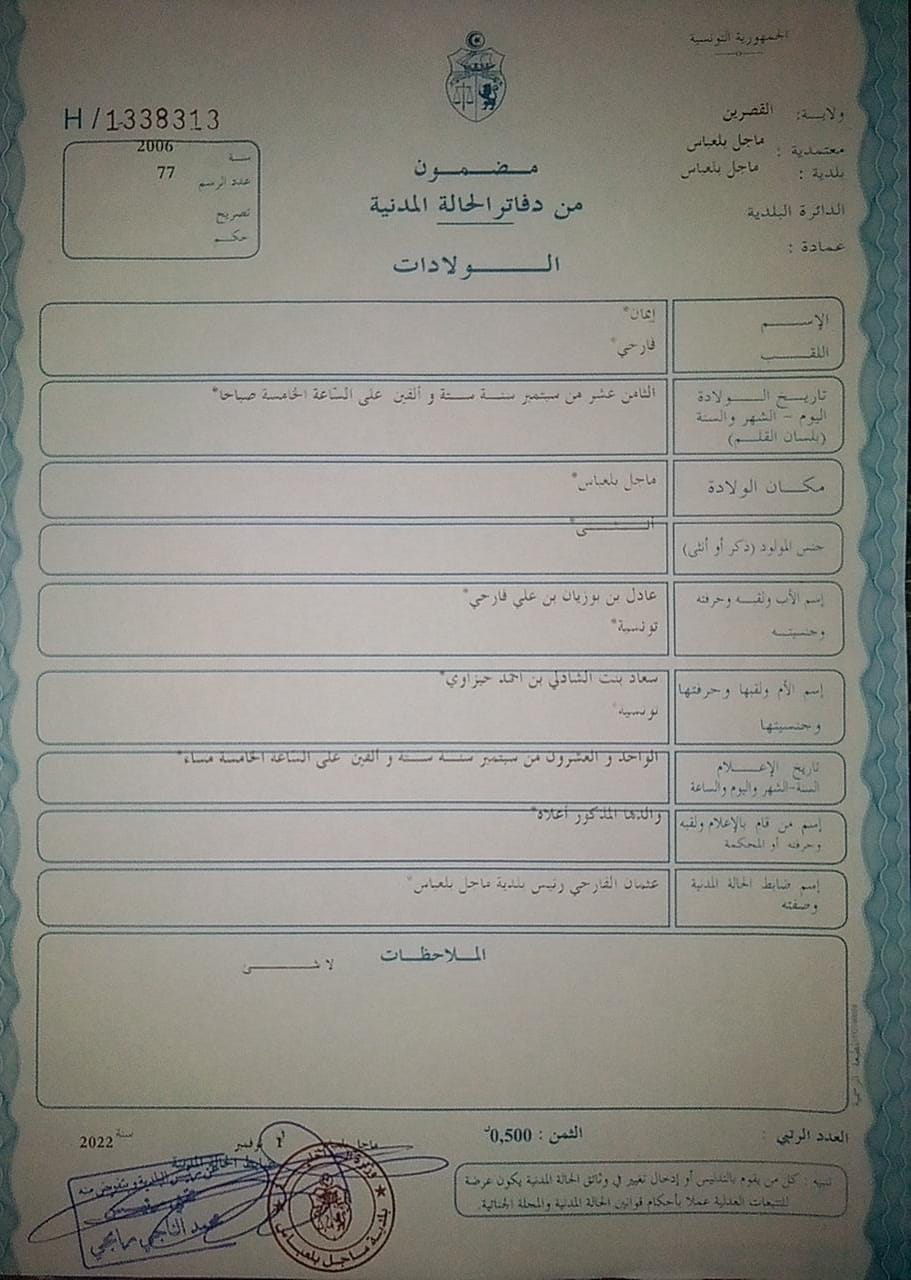 الجمهورية التونسية
ولاية: القصرين
معتمدية : ماجل بلعباس
بلدية : ماجل بلعباس
الدائرة البلدية
عمادة :
H / 1338313
سنة 2006
عدد الرسم 77
تصريح
حكم
مضمون
من دفاتر الحالة المدنية
الولادات
الإسم إيمان*
اللقب فارحي*
تاريخ الولادة الثامن عشر من سبتمبر سنة ستة و ألفين على الساعة الخامسة صباحا*
اليوم - الشهر والسنة
(بلسان القلم)
مكان الولادة ماجل بلعباس*
جنس المولود (ذكر أو أنثى) أنثى*
إسم الأب ولقبه وحرفته عادل بن بوزيان بن علي فارحي*
وجنسيته تونسية*
إسم الأم ولقبها وحرفتها سعاد بنت الشاذلي بن احمد حيزاوي*
وجنسيتها تونسية*
تاريخ الإعلام الواحد و العشرون من سبتمبر سنة ستة و ألفين على الساعة الخامسة مساء*
السنة-الشهر واليوم والساعة
إسم من قام بالإعلام ولقبه والدها المذكور أعلاه*
وحرفته أو المحكمة
إسم ضابط الحالة المدنية عثمان الفارحي رئيس بلدية ماجل بلعباس*
وصفته
الملاحظات
لا شئ
العدد الرتبي :
الثمن : 0,500د
نوفمبر سنة 2022
تنبيه : كل من يقوم بالتدليس أو إدخال تغيير في وثائق الحالة المدنية يكون عرضة
للتتبعات العدلية عملا بأحكام قوانين الحالة المدنية والمجلة الجنائية.
بلدية ماجل بلعباس